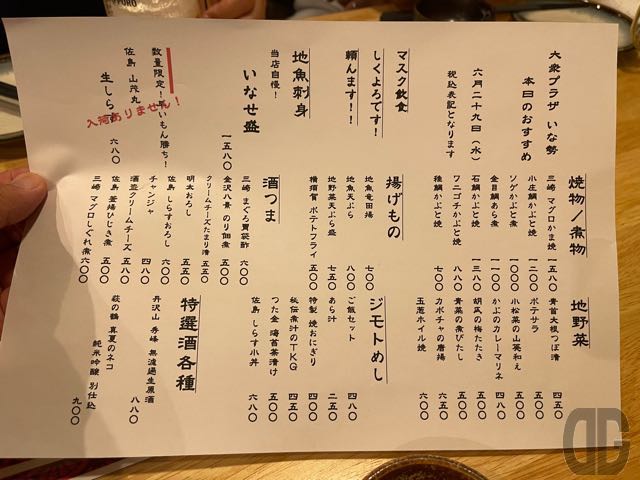 大衆プラザ いな勢
本日のおすすめ
六月二十九日（水）
税込表記となります
マスク飲食
しくよろです！
頼んます！！
地魚刺身
当店自慢！
いなせ盛 一五八〇
数量限定！早いもん勝ち！
佐島 山茂丸
生しらす 六八〇
入荷ありません！
焼物／煮物
三崎 マグロかま焼 一五八〇
小庄鯛かぶと焼 一二〇〇
ソゲかぶと煮 一〇〇〇
金目鯛あら煮 一〇〇〇
石鯛かぶと焼 一三八〇
ワニゴチかぶと焼 八八〇
糀鯛かぶと焼 七〇〇
揚げもの
地魚竜田揚 七〇〇
地魚天ぷら 八〇〇
地野菜天ぷら盛 七五〇
横須賀 ポテトフライ 五〇〇
酒つま
三崎 まぐろ胃袋酢 六〇〇
金沢八景 のり佃煮 五〇〇
クリームチーズたまり漬 五五〇
明太おろし 五五〇
佐島 しらすおろし 六五〇
チャンジャ 四八〇
酒盗クリームチーズ 五八〇
佐島 釜揚ひじき煮 五〇〇
三崎 マグロしぐれ煮 六〇〇
地野菜
青首大根つぼ漬 四五〇
ポテサラ 五〇〇
小松菜の山葵和え 五〇〇
かぶのカレーマリネ 四八〇
胡瓜の梅たたき 五〇〇
青菜の煮びたし 五〇〇
カボチャの唐揚 六五〇
玉葱ホイル焼 六〇〇
ジモトめし
ご飯セット 四八〇
あら汁 二五〇
特製 焼おにぎり 四〇〇
秘伝煮汁のTKG 四五〇
つた金 海苔茶漬け 五〇〇
佐島 しらす小丼 六八〇
特選酒各種
丹沢山 秀峰 無濾過生原酒 八八〇
萩の鶴 真夏のネコ
純米吟醸 別仕込 九〇〇
DG